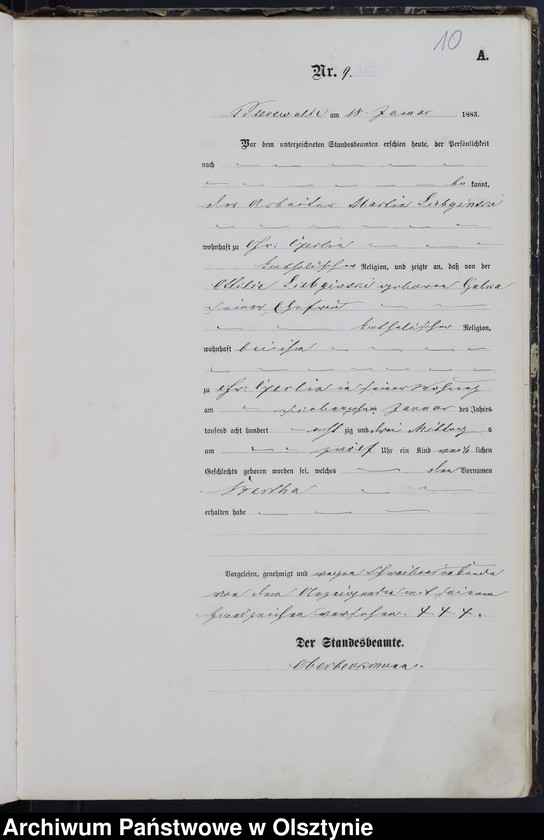 10
A.
Nr. 9.
am 18. Januar 1883.
Vor dem unterzeichneten Standesbeamten erschien heute, der Persönlichkeit
nach
be kannt,
der Arbeiter Martin
wohnhaft zu Gr:
katholischer Religion, und zeigte an, daß von der
Ottilie geborene
seiner Ehefrau
katholischer Religion,
wohnhaft bei ihm
zu Gr: in seiner Wohnung
am siebenzehn Januar des Jahres
tausend acht hundert acht zig und drei Mittag s
um zwölf Uhr ein Kind weib lichen
Geschlechts geboren worden sei, welches den Vornamen
Bertha
erhalten habe
Vorgelesen, genehmigt und wegen Schreibensunkunde
von dem Anzeigenden mit seinem
Handzeichen versehen. + + +.
Der Standesbeamte.
Archiwum Państwowe w Olsztynie